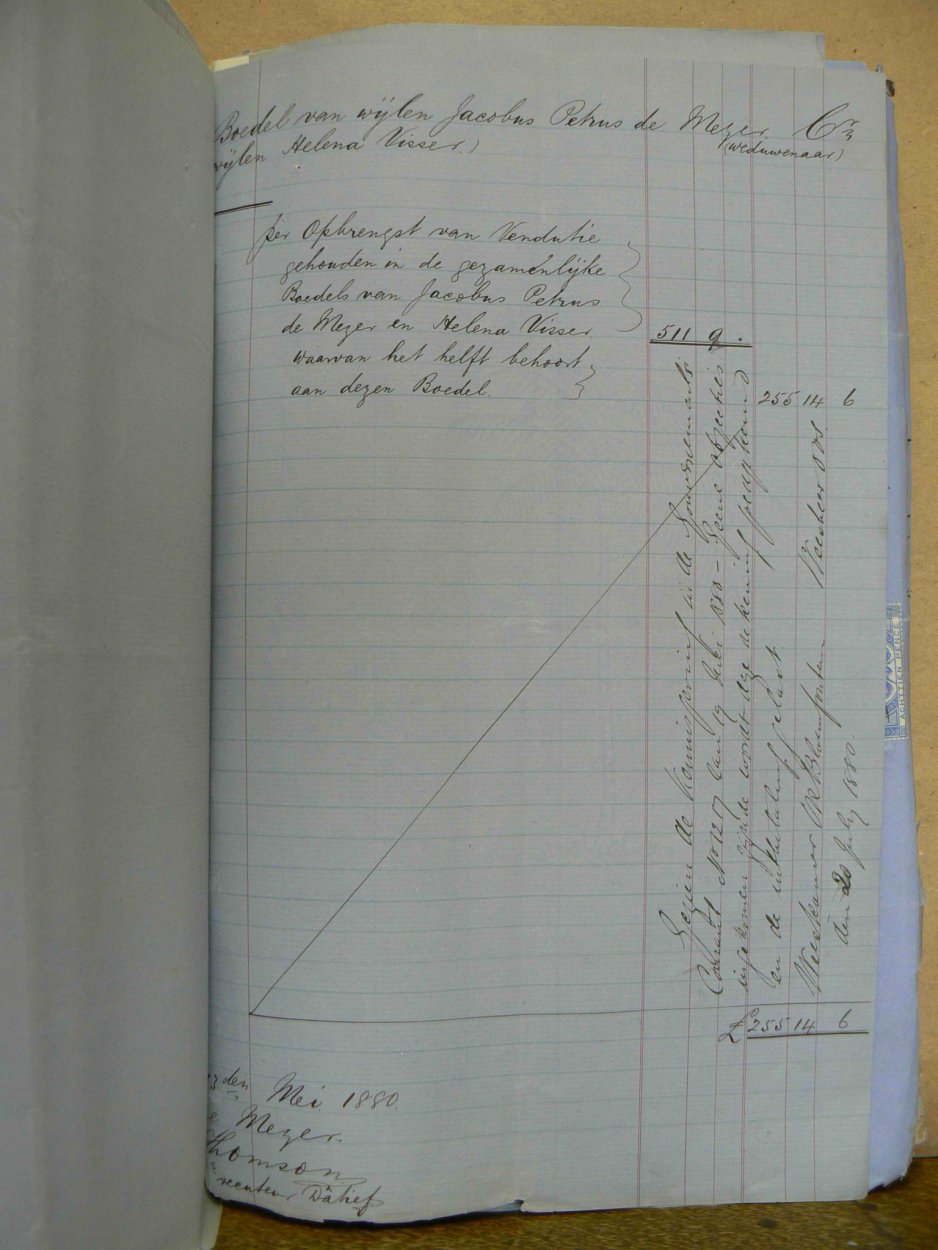 Boedel van wijlen Jacobus Petrus de Mezer Cr
wijlen Helena Visser) (weduwenaar)
per Opbrengst van Vendutie
gehouden in de gezamenlijke
Boedels van Jacobus Petrus
de Mezer en Helena Visser. 511 9 .
waarvan het helft behoort
aan dezen Boedel. 255 14 6
Gezien de Kennisgeving in de Gouvernements
Courant No 1217 van 19 Juli 1880 - Geene objecties
ingekomen zijnde wordt deze rekening geapprobeerd
en de uitbetaling gelast
Weeskamer Bloemfontein Weesheer OVS
den 20 July 1880.
£ 255 14 6
13den Mei 1880.
Mezer.
Thomson
Datief
ACHTTIEN PENCE